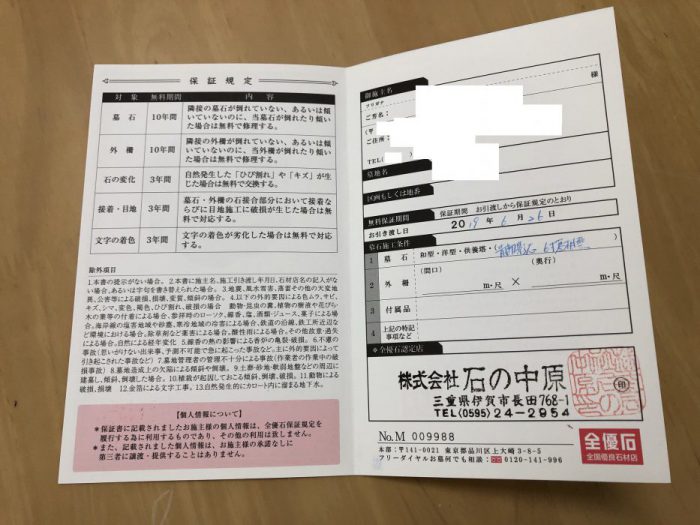 保証規定
対象 無料期間 内容
墓石 10年間 隣接の墓石が倒れていない、あるいは傾
いていないのに、当墓石が倒れたり傾い
た場合は無料で修理する。
外柵 10年間 隣接の外柵が倒れていない、あるいは傾
いていないのに、当外柵が倒れたり傾い
た場合は無料で修理する。
石の変化 3年間 自然発生した「ひび割れ」や「キズ」が生
じた場合は無料で交換する。
接着・目地 3年間 墓石・外柵の石接合部分において接着な
らびに目地施工に破損が生じた場合は無
料で対応する。
文字の着色 3年間 文字の着色が劣化した場合は無料で対応
する。
除外項目
1.本書の提示がない場合。2.本書に施主名、施工引き渡し年月日、石材店名の記入が
ない場合、あるいは字句を書き替えられた場合。3.地震、風水雪害、落雷その他の天変地
異、公害等による破損、損壊、変質、傾斜の場合。4.以下の外的要因による色ムラ、サビ、
キズ、シマ、変色、褐色、ひび割れ、破損の場合 動物・昆虫の糞、植物の樹液や花びら
木の葉等の付着による場合、参拝時のローソク、線香、塩、酒類・ジュース、菓子による場
合、海岸線の塩害地域や砂塵、寒冷地域の冷害による場合、鉄道の沿線、鉄工所近辺な
ど環境における場合、除草剤など薬害による場合、酸性雨による場合、その他故意・過失
による場合、自然による経年変化 5.線香の熱の影響による香炉の亀裂・破損。6.不慮の
事故(思いがけない出来事、予測不可能で急に起こった事故など、主に外的要因によって
引き起こされた事故など) 7.墓地管理者の管理不十分による事故(作業者の作業中の破
損事故) 8.墓地造成上の欠陥による傾斜や倒壊。9.土葬・砂地・軟弱地盤などの周辺に
建墓し、傾斜、倒壊した場合。10.植栽が起因しておこる傾斜、倒壊、破損。11.動物による
破損、損壊 12.金箔による文字工事。13.自然発生的にカロート内に溜まる地下水。
【個人情報について】
*保証書に記載されましたお施主様の個人情報は、全優石保証規定を
履行する為に利用するものであり、その他の利用は致しません。
*また、記載されました個人情報は、お施主様の承諾なしに
第三者に譲渡・提供することはありません。
御施主名
フリガナ
ご芳名: 様
(〒
ご住所:
TEL(
墓地名
区画もしくは地番
無料保証期間 保証期間 お引渡しから保証規定のとおり
お引渡し日 2019年6月26日
墓石施工条件
1 墓石 和型・洋型・供養塔・(
2 外柵 (間口) (奥行)
m・尺 × m・尺
3 付属品
4 上記の特記
事項など
※全優石認定店
株式会社 石の中原
三重県伊賀市長田768-1
TEL(0595)24-2954
印
No.M 009988
本部:〒141-0021 東京都品川区上大崎3-8-5
フリーダイヤルお墓何でも相談:0120-141-996
全優石
全国優良石材店